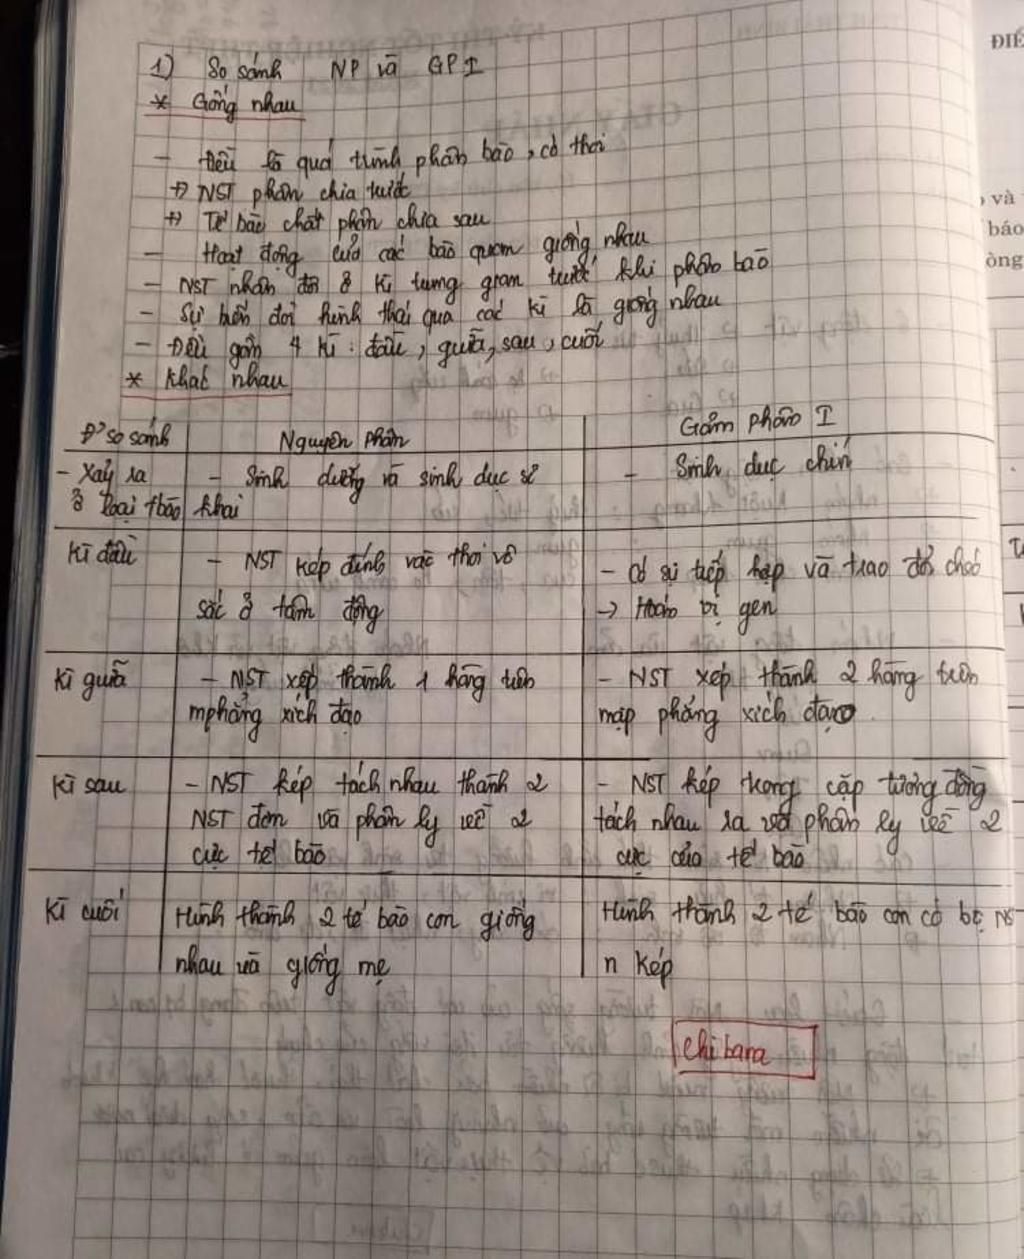 1) So sánh NP và GP I
* Giống nhau
- Đều là quá trình phân bào, có thoi
+> NST phân chia trước
+> Tế bào chất phân chia sau
- Hoạt động của các bào quan giống nhau
- NST nhân đôi ở kì trung gian trước khi phân bào
- Sự biến đổi hình thái qua các kì là giống nhau
- Đều gồm 4 kì: đầu, giữa, sau, cuối
* Khác nhau
Đ' so sánh | Nguyên phân | Giảm phân I
- Xảy ra ở loại tbào | - Sinh dưỡng và sinh dục sơ khai | - Sinh dục chín
Kì đầu | - NST kép đính vào thoi vô | - Có sự tiếp hợp và trao đổi chéo
sắc ở tâm động | -> Hoán vị gen
Kì giữa | - NST xếp thành 1 hàng trên | - NST xếp thành 2 hàng trên
mphẳng xích đạo | mặp phẳng xích đạo.
Kì sau | - NST kép tách nhau thành 2 | - NST kép trong cặp tương đồng
NST đơn và phân ly về 2 | tách nhau ra và phân ly về 2
cực tế bào | cực của tế bào
Kì cuối | Hình thành 2 tế bào con giống | Hình thành 2 tế bào con có bộ NST
nhau và giống mẹ | n kép
Chibara
ĐIỂ
và
báo
òng